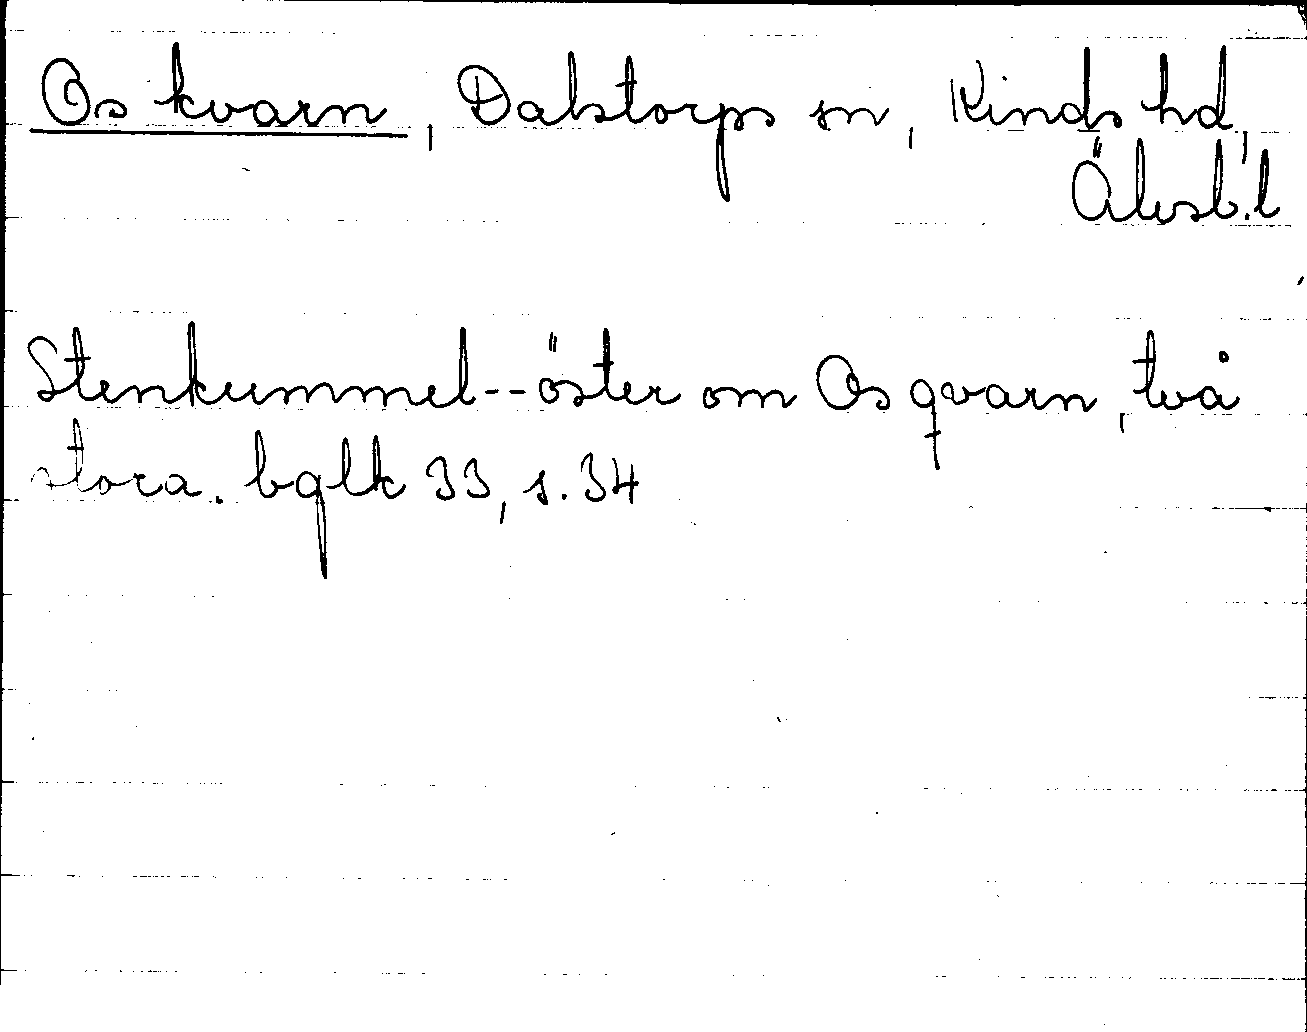 Os kvarn, Dalstorps sn, Kinds hd,
Älvsb. l
Stenkummel--öster om Os qvarn, två
stora. bglk 33, s. 34